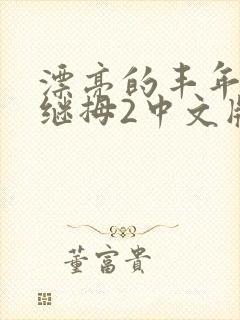 漂亮的丰年
继拇2中文版
董富貴